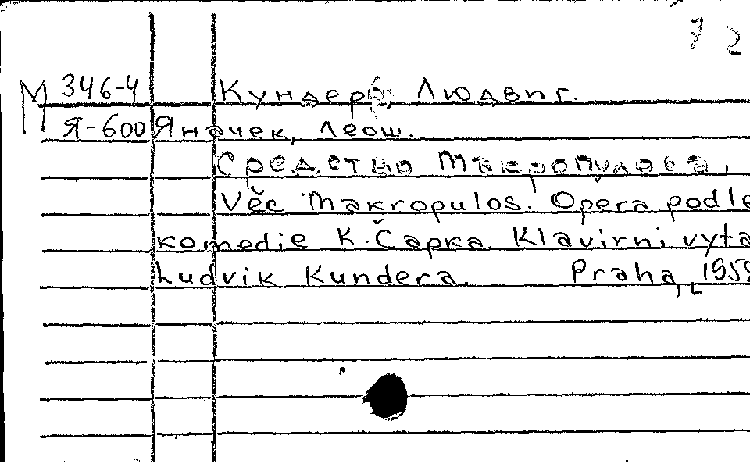 72
М 346-4 Кундера, Людвиг.
Я-600 Яначек, Леош.
Средство Макропулоса.
Věc Makropulos. Opera podle
komedie K. Čapka. Klavirni vyta
Ludvik Kundera. Praha,